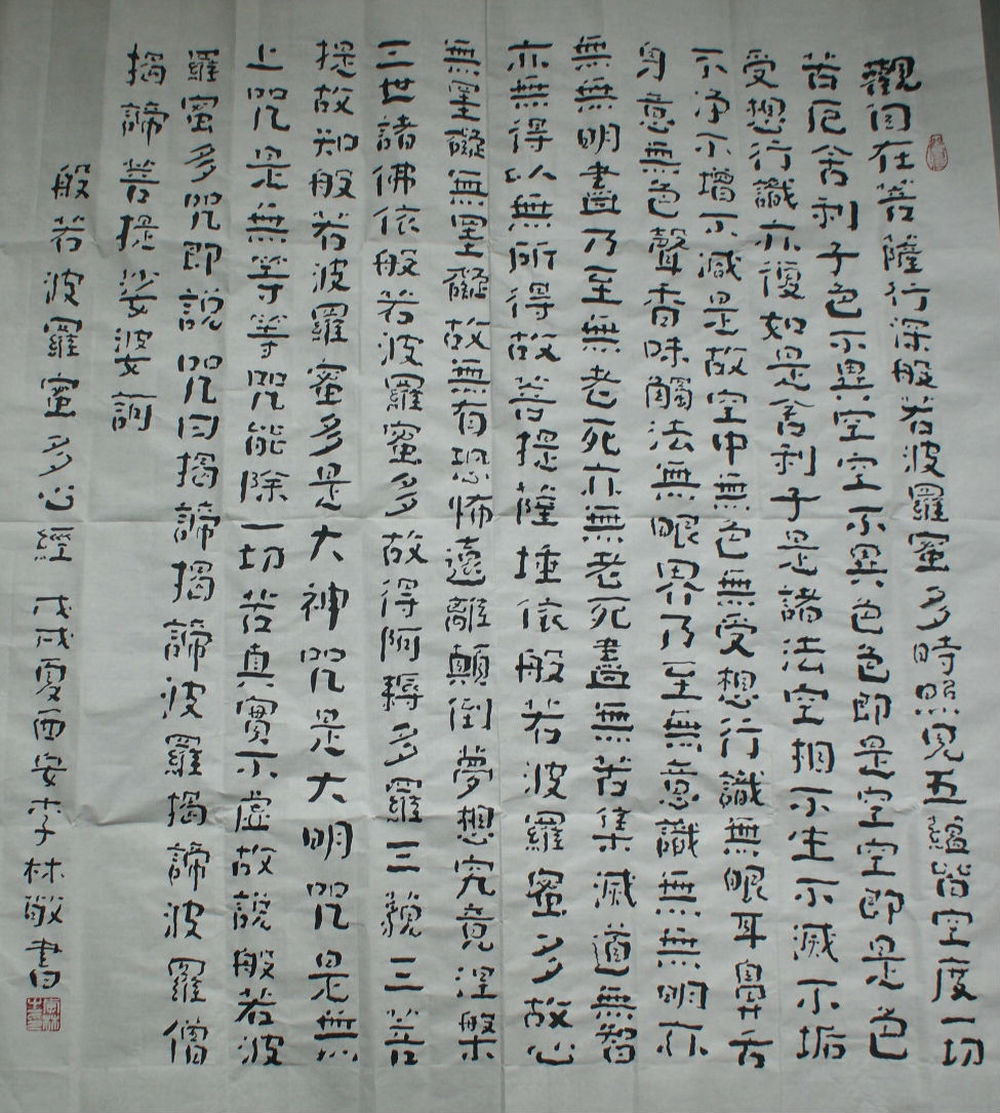 觀自在菩薩行深般若波羅蜜多時照見五蘊皆空度一切
苦厄舍利子色不異空空不異色色即是空空即是色
受想行識亦復如是舍利子是諸法空相不生不滅不垢
不淨不增不減是故空中無色無受想行識無眼耳鼻舌
身意無色聲香味觸法無眼界乃至無意識無無明亦
無無明盡乃至無老死亦無老死盡無苦集滅道無智
亦無得以無所得故菩提薩埵依般若波羅蜜多故心
無罣礙無罣礙故無有恐怖遠離顛倒夢想究竟涅槃
三世諸佛依般若波羅蜜多故得阿耨多羅三藐三菩
提故知般若波羅蜜多是大神咒是大明咒是無
上咒是無等等咒能除一切苦真實不虛故說般若波
羅蜜多咒即說咒曰揭諦揭諦波羅揭諦波羅僧
揭諦菩提娑婆訶
般若波羅蜜多心經 戊戌夏西安李林敬書